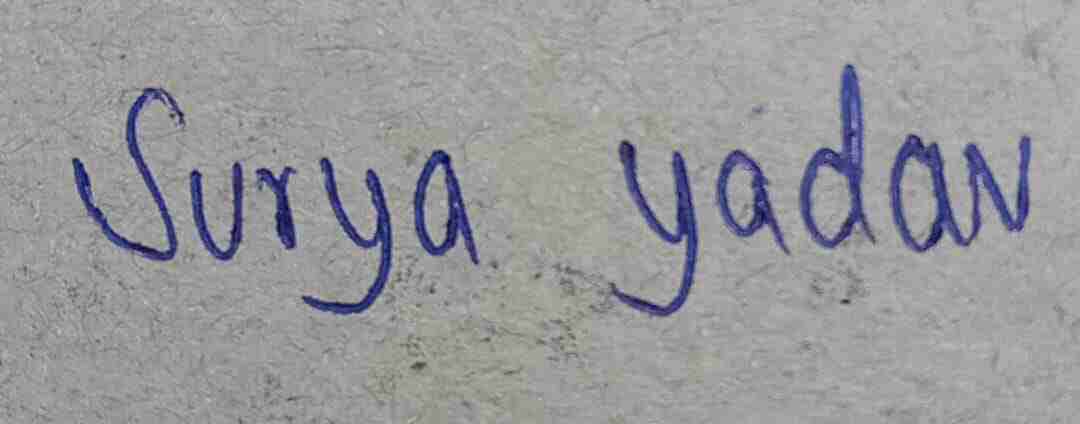 Surya yadav